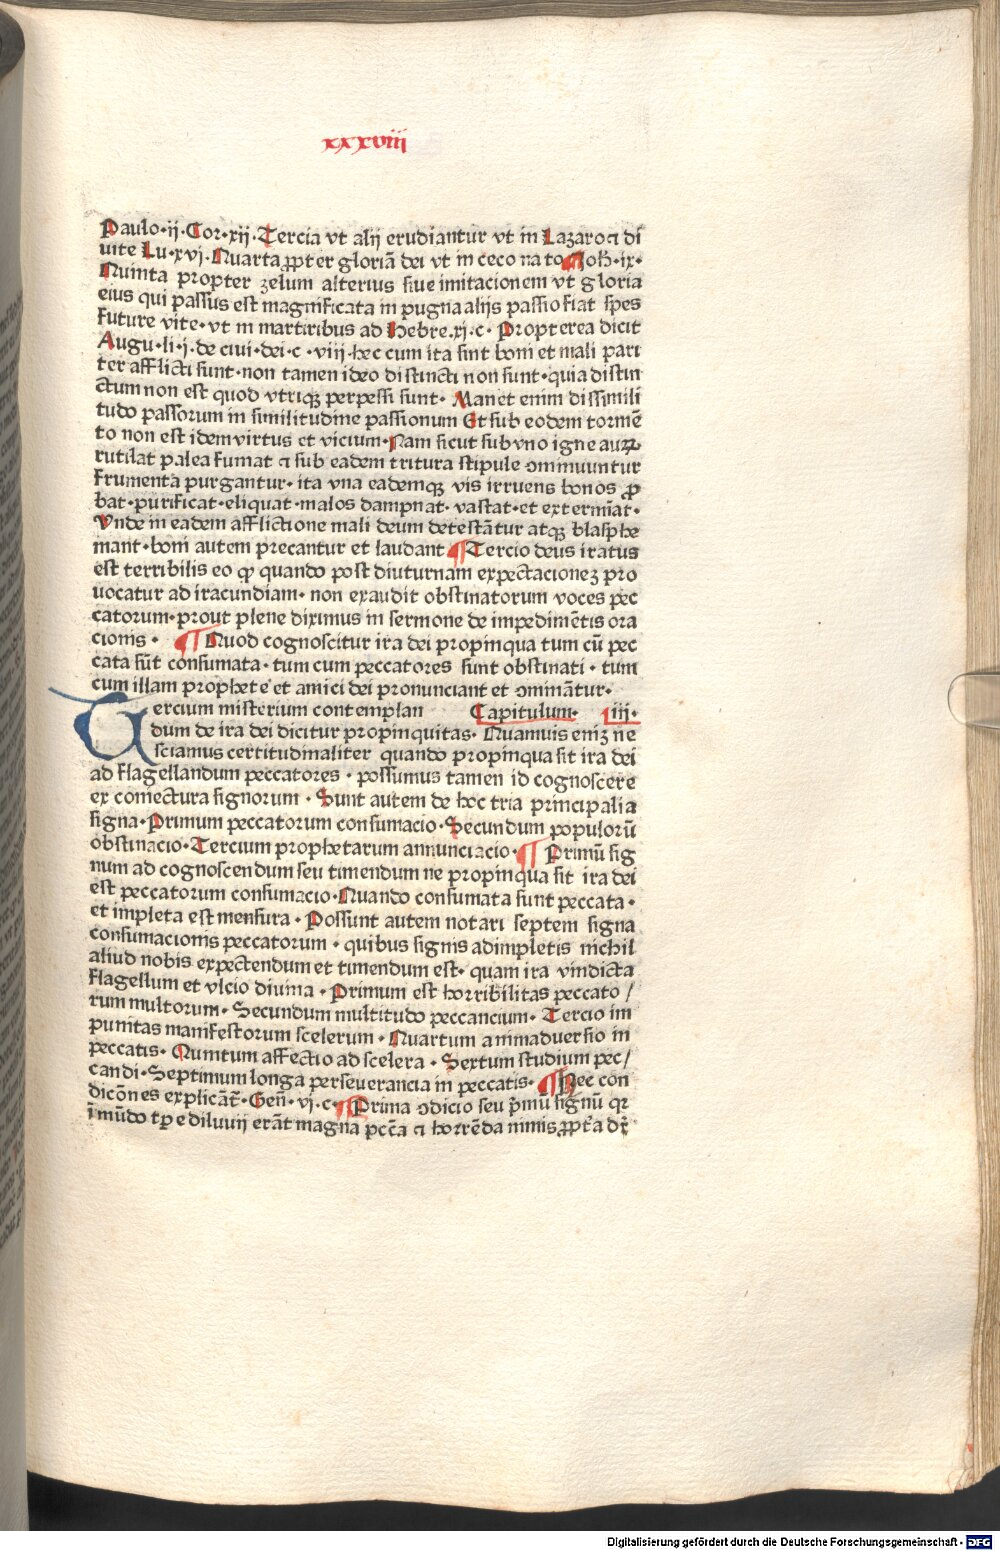 xxxviii
Paulo·ij·Cor·xij·Tercia vt alij erudiantur vt in Lazaro ⁊ di
uite Lu·xvj·Quarta ꝓpter gloriā dei vt in ceco nato Joh̄·ix·
Quinta propter zelum alterius siue imitacionem vt gloria
eius qui passus est magnificata in pugna alijs passio fiat spes
future vite·vt in martiribus ad Hebre.xj·c· Propterea dicit
Augu·li·j·de ciui·dei·c·viij·hec cum ita sint boni et mali pari
ter afflicti sunt·non tamen ideo distincti non sunt·quia distin
ctum non est quod vtriqꝫ perpessi sunt· Manet enim dissimili
tudo passorum in similitudine passionum Et sub eodem tormē
to non est idem virtus et vicium·Nam sicut sub vno igne auꝝ
rutilat palea fumat ⁊ sub eadem tritura stipule ꝯminuuntur
frumenta purgantur·ita vna eademqꝫ vis irruens bonos ꝓ
bat·purificat·eliquat·malos dampnat·vastat·et extermīat·
Vnde in eadem afflictione mali deum detestātur atqꝫ blasphe
mant·boni autem precantur et laudant ¶Tercio deus iratus
est terribilis eo ꝙ quando post diuturnam expectacioneꝫ pro
uocatur ad iracundiam· non exaudit obstinatorum voces pec
catorum·prout plene diximus in sermone de impedimētis ora
cionis· ¶Quod cognoscitur ira dei propinqua tum cū pec
cata sūt consumata·tum cum peccatores sunt obstinati·tum
cum illam prophete et amici dei pronunciant et ꝯminātur·
Tercium misterium contemplan Capitulum· iij·
dum de ira dei dicitur propinquitas· Quamuis eniꝫ ne
sciamus certitudinaliter quando propinqua sit ira dei
ad flagellandum peccatores·possumus tamen id cognoscere
ex coniectura signorum·Sunt autem de hoc tria principalia
signa·Primum peccatorum consumacio·Secundum populorū
obstinacio·Tercium prophetarum annunciacio·¶Primū sig
num ad cognoscendum seu timendum ne propinqua sit ira dei
est peccatorum consumacio·Quando consumata sunt peccata·
et impleta est mensura·Possunt autem notari septem signa
consumacionis peccatorum·quibus signis adimpletis nichil
aliud nobis expectendum et timendum est·quam ira vindicta
flagellum et vlcio diuina·Primum est horribilitas peccato/
rum multorum·Secundum multitudo peccancium·Tercio im
punitas manifestorum scelerum·Quartum animaduersio in
peccatis·Quintum affectio ad scelera·Sextum studium pec/
candi·Septimum longa perseuerancia in peccatis·¶Hec con
dicōnes explicāt̄·Geñ·vj·c·¶Prima ꝯdicio seu p̄mū signū qr̄
ī mūdo tꝑe diluuij erāt magna pctā ⁊ horrēda nimis ꝓpt̄a dr̄
Digitalisierung gefördert durch die Deutsche Forschungsgemeinschaft - DFG